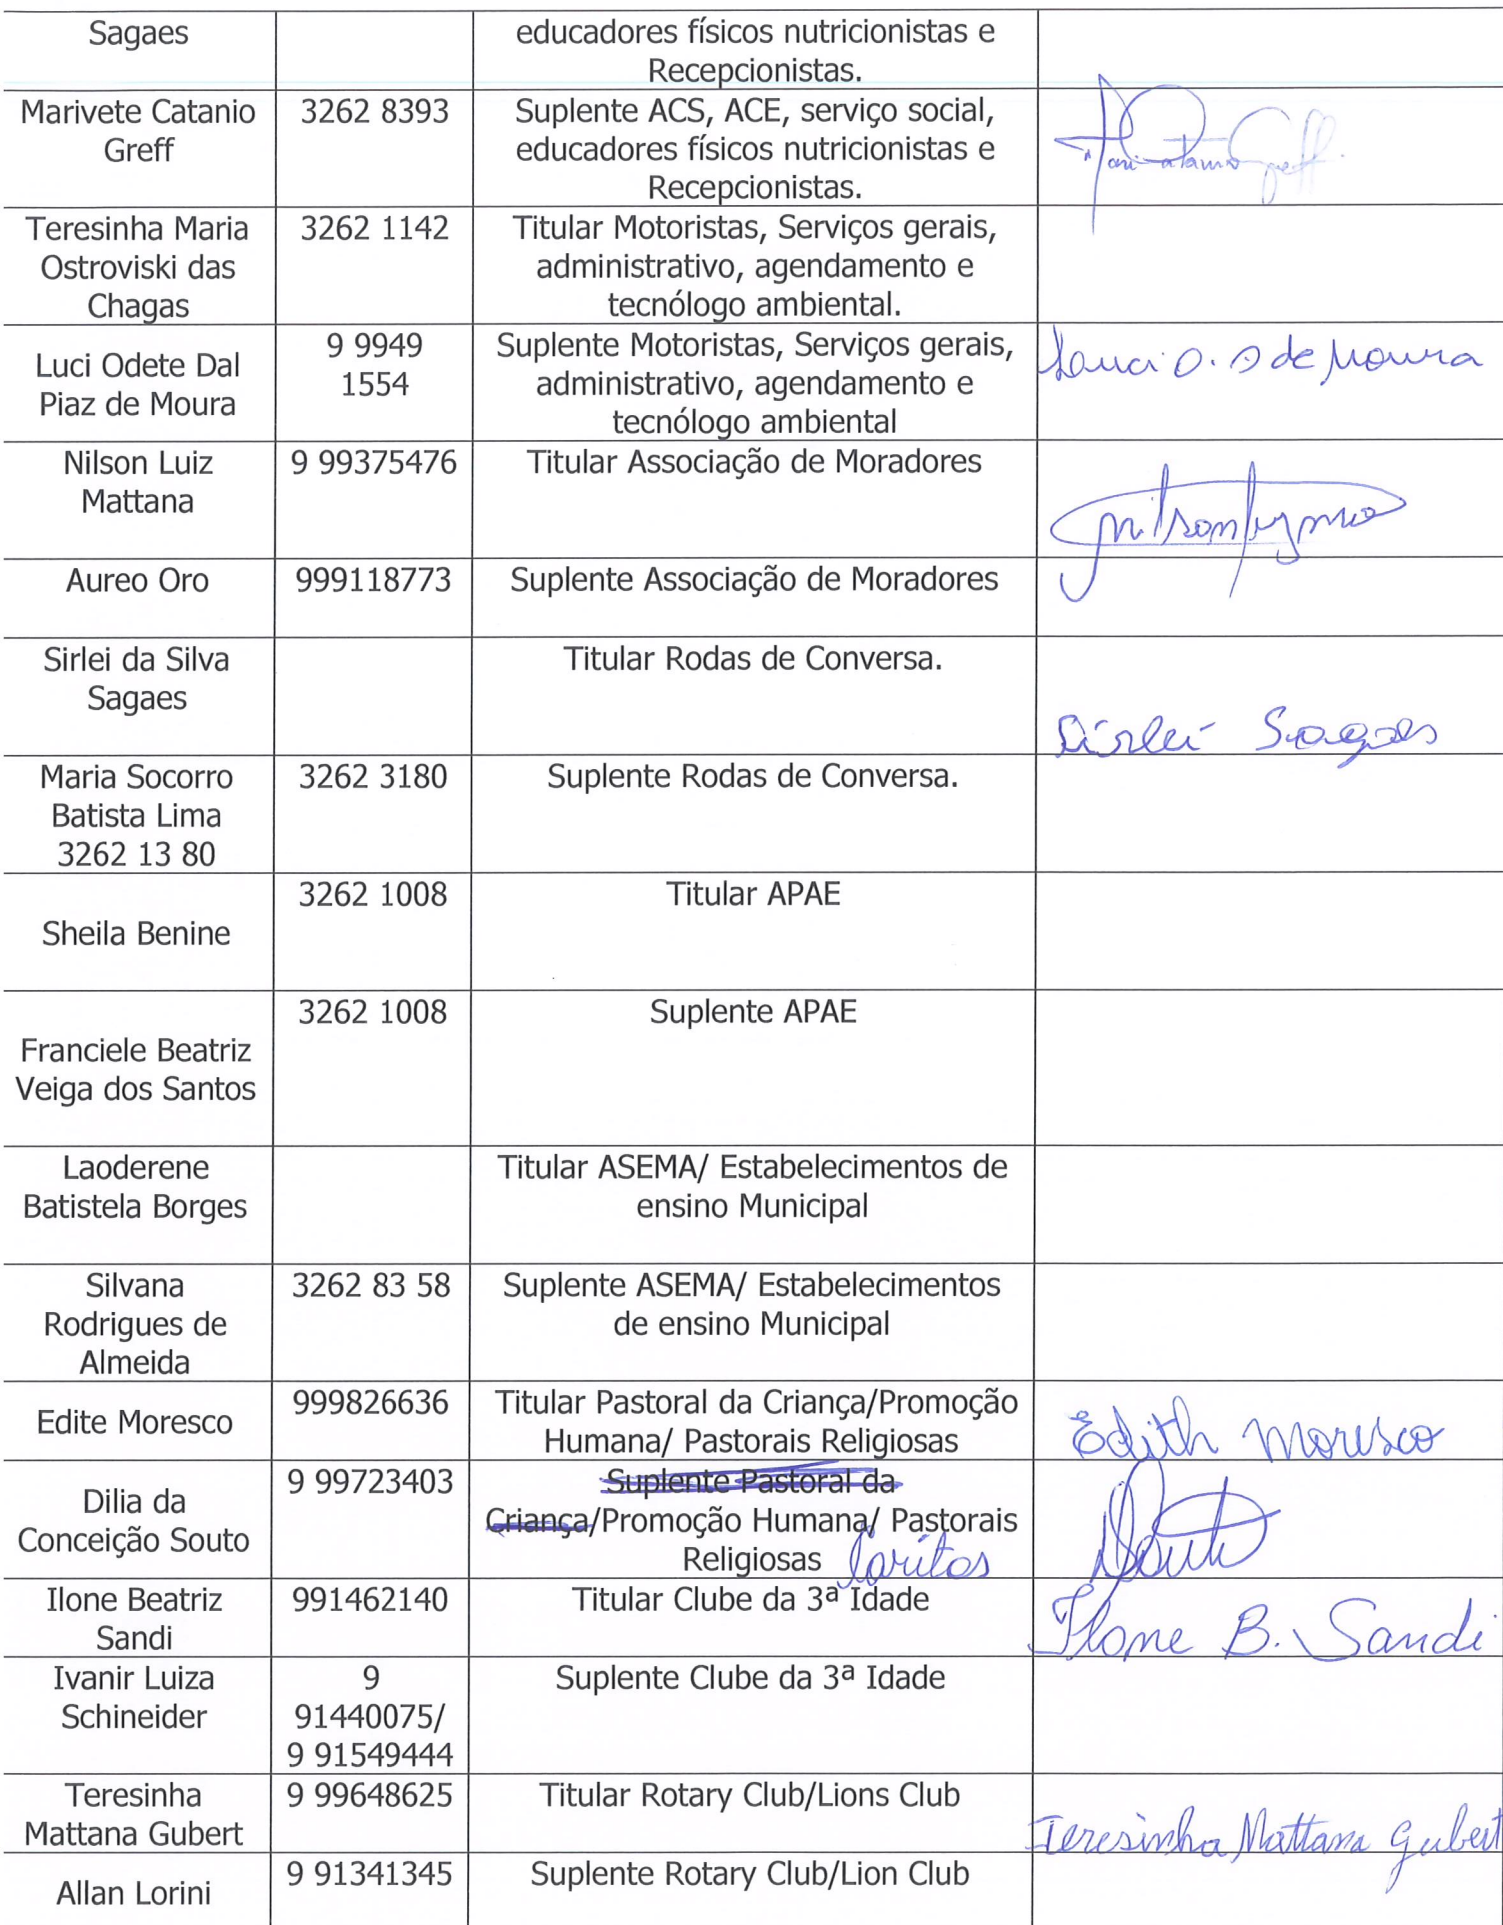 Sagaes
educadores físicos nutricionistas e
Recepcionistas.
Marivete Catanio
Greff
3262 8393
Suplente ACS, ACE, serviço social,
educadores físicos nutricionistas e
Recepcionistas.
Teresinha Maria
Ostroviski das
Chagas
3262 1142
Titular Motoristas, Serviços gerais,
administrativo, agendamento e
tecnólogo ambiental.
Luci Odete Dal
Piaz de Moura
9 9949
1554
Suplente Motoristas, Serviços gerais,
administrativo, agendamento e
tecnólogo ambiental
Luci O. D de Moura
Nilson Luiz
Mattana
9 99375476
Titular Associação de Moradores
Aureo Oro
999118773
Suplente Associação de Moradores
Sirlei da Silva
Sagaes
Titular Rodas de Conversa.
Sirlei Sagaes
Maria Socorro
Batista Lima
3262 13 80
3262 3180
Suplente Rodas de Conversa.
Sheila Benine
3262 1008
Titular APAE
Franciele Beatriz
Veiga dos Santos
3262 1008
Suplente APAE
Laoderene
Batistela Borges
Titular ASEMA/ Estabelecimentos de
ensino Municipal
Silvana
Rodrigues de
Almeida
3262 83 58
Suplente ASEMA/ Estabelecimentos
de ensino Municipal
Edite Moresco
999826636
Titular Pastoral da Criança/Promoção
Humana/ Pastorais Religiosas
Edith Moresco
Dilia da
Conceição Souto
9 99723403
Suplente Pastoral da
Criança/Promoção Humana/ Pastorais
Religiosas Caritas
Ilone Beatriz
Sandi
991462140
Titular Clube da 3ª Idade
Ilone B. Sandi
Ivanir Luiza
Schineider
9
91440075/
9 91549444
Suplente Clube da 3ª Idade
Teresinha
Mattana Gubert
9 99648625
Titular Rotary Club/Lions Club
Teresinha Mattana Gubert
Allan Lorini
9 91341345
Suplente Rotary Club/Lion Club